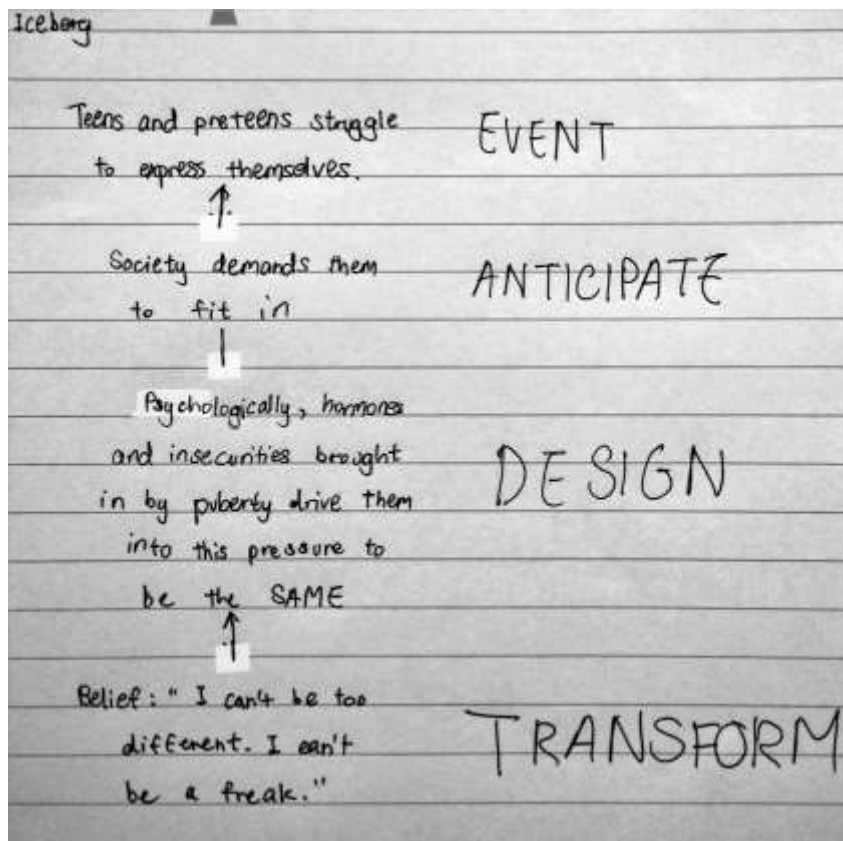 Iceberg
Teens and preteens struggle
to express themselves.
EVENT
Society demands them
to fit in
ANTICIPATE
Psychologically, hormones
and insecurities brought
in by puberty drive them
into this pressure to
be the SAME
DESIGN
Belief: " I can't be too
different. I can't
be a freak."
TRANSFORM